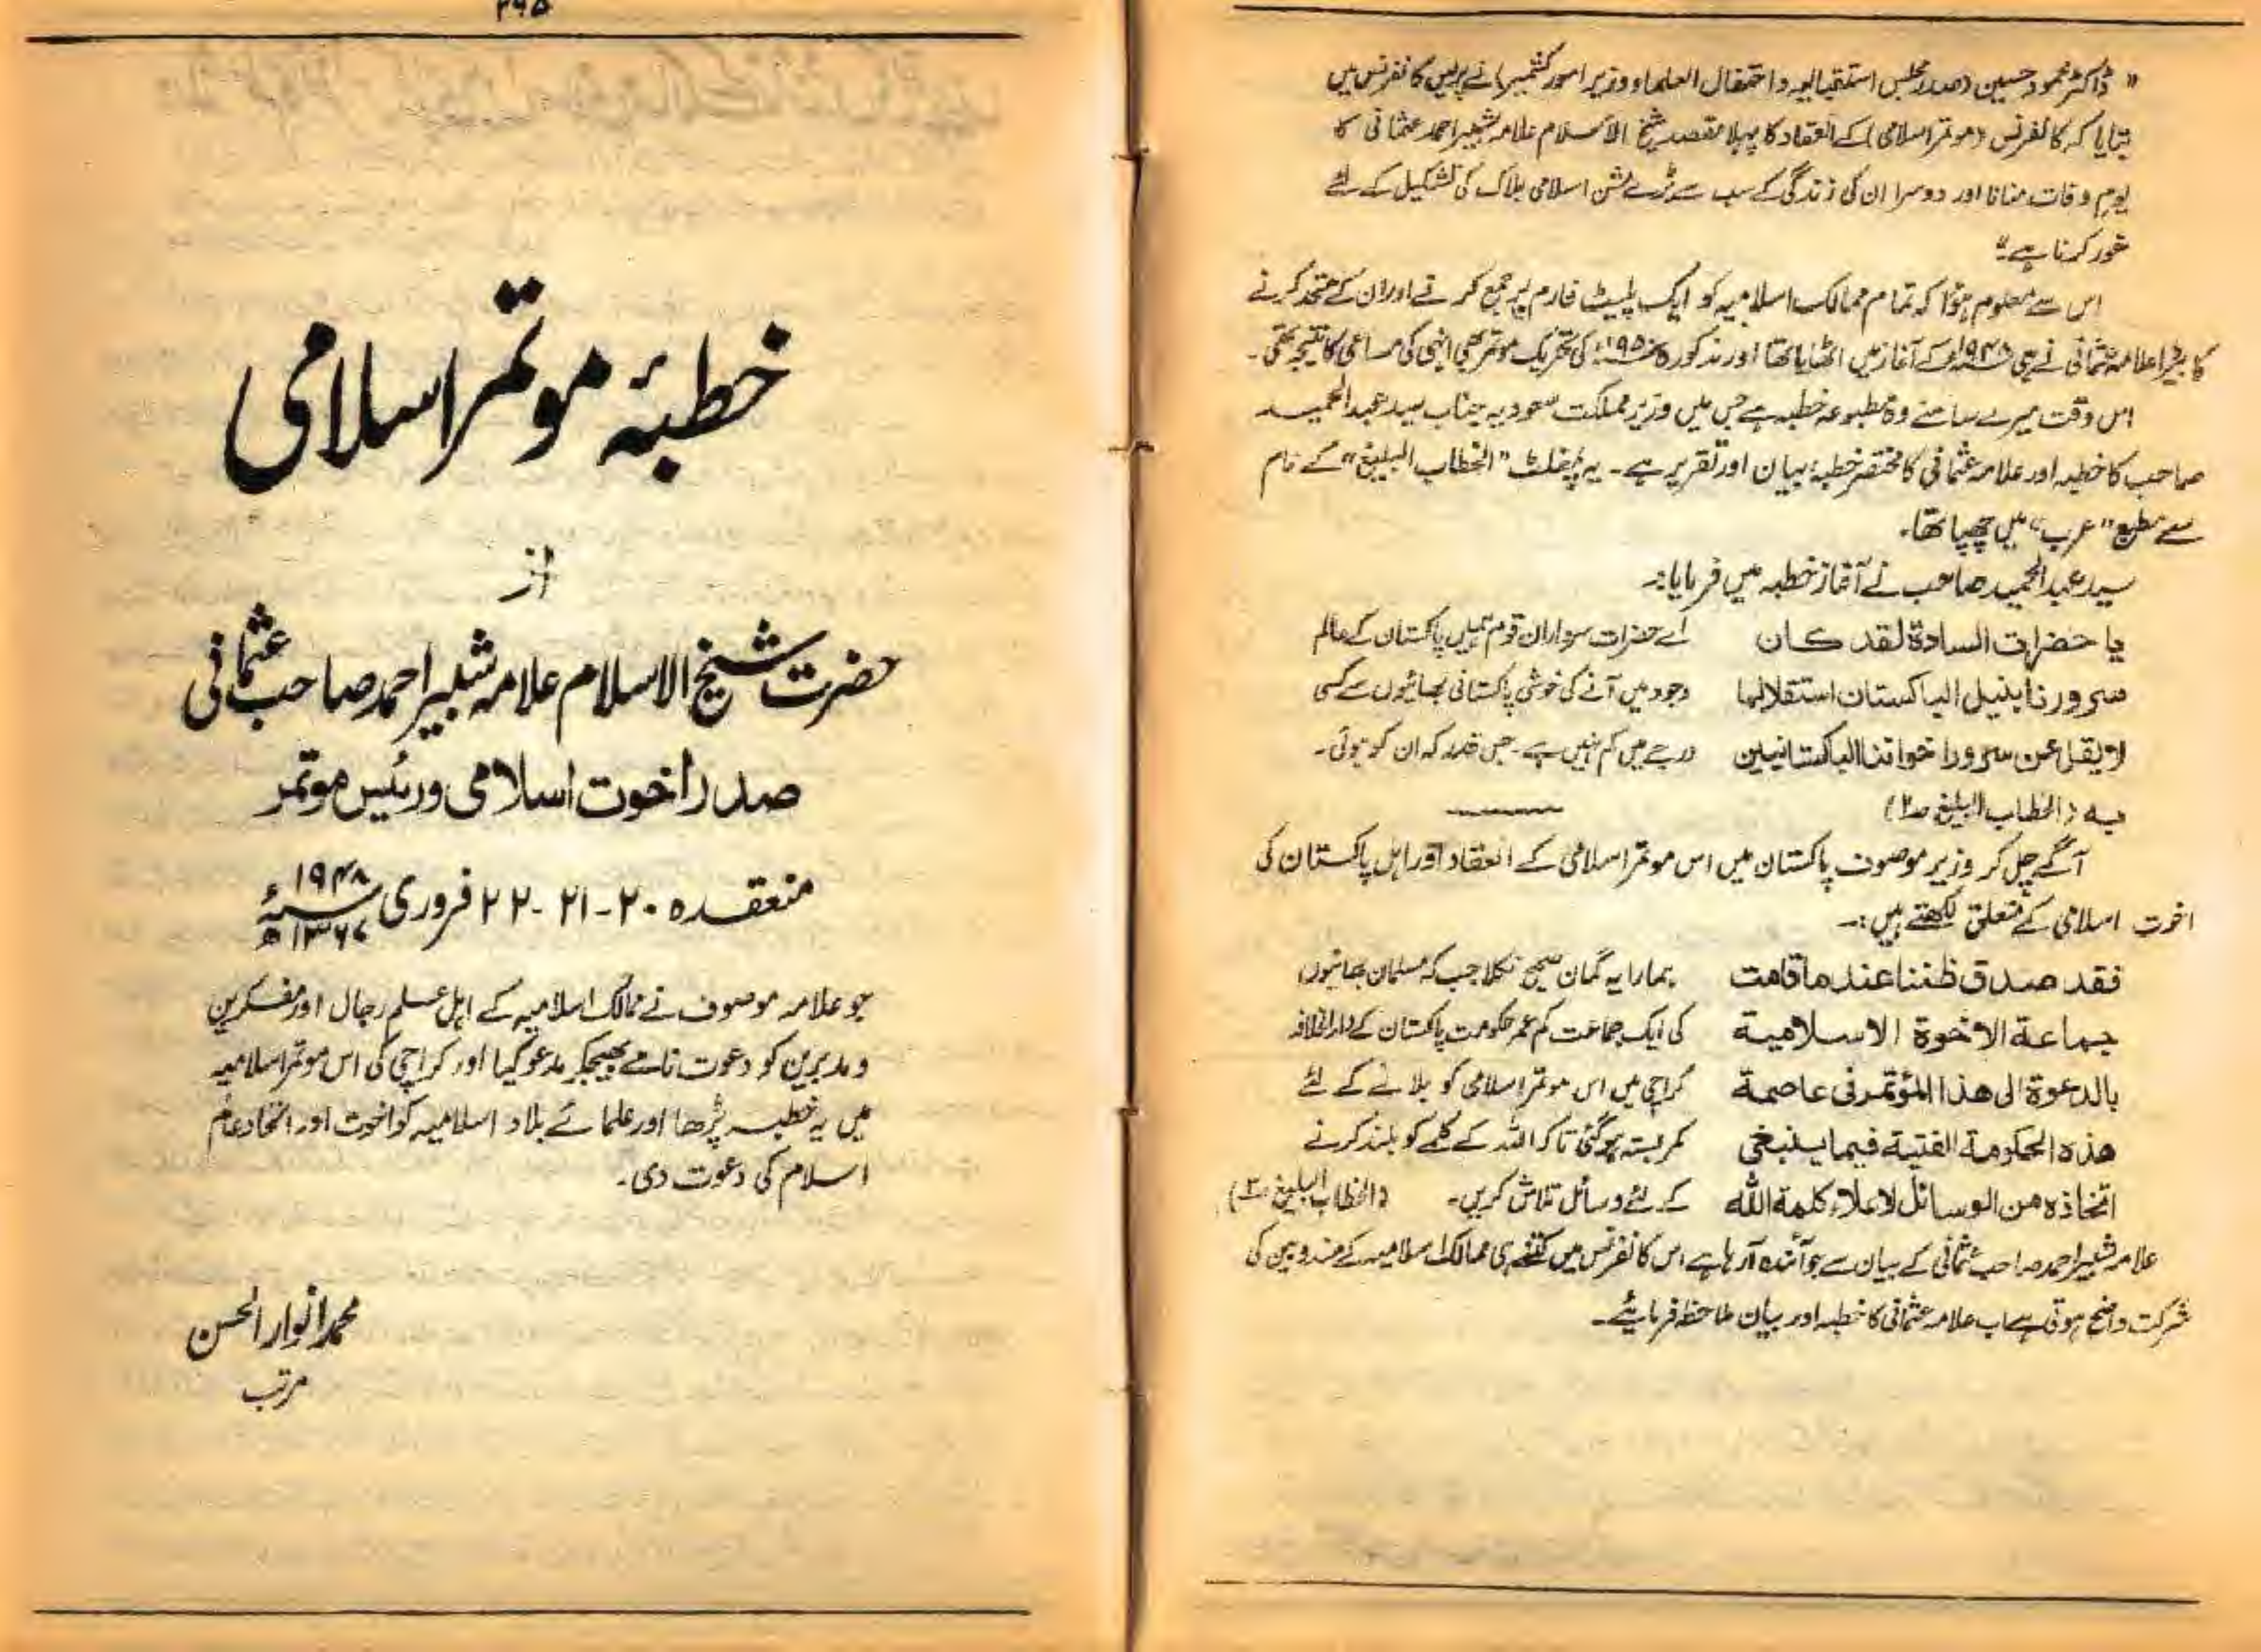 " ڈاکٹر محمود حسین (صدر مجلس استقبالیہ و احتفال العلماء و وزیر امور کشمیر) نے پریس کانفرنس میں
بتایا کہ کانفرنس (موتمر اسلامی) کے انعقاد کا پہلا مقصد شیخ الاسلام علامہ شبیر احمد عثمانی کا
یوم وفات منانا اور دوسرا ان کی زندگی کے سب سے بڑے مشن اسلامی بلاک کی تشکیل کے لئے
غور کرنا ہے"
اس سے معلوم ہوا کہ تمام ممالک اسلامیہ کو ایک پلیٹ فارم پر جمع کرنے اور ان کے متحد کرنے
کا بیڑا علامہ عثمانی نے ہی ۱۹۴۸ء کے آغاز میں اٹھایا تھا اور مذکورہ ۱۹۵۰ء کی تحریک موتمر بھی انہی کی مساعی کا نتیجہ تھی۔
اس وقت میرے سامنے وہ مطبوعہ خطبہ ہے جس میں وزیر مملکت سعودیہ جناب سید عبدالحمید
صاحب کا خطبہ اور علامہ عثمانی کا مختصر خطبہ، بیان اور تقریر ہے۔ یہ پمفلٹ "الخطاب البلیغ" کے نام
سے مطبع "عرب" میں چھپا تھا۔
سید عبدالحمید صاحب نے آغاز خطبہ میں فرمایا:۔
یا حضرات السادة لقد کان اے حضرات سرداران قوم ہمیں پاکستان کے عالم
سرورنا بنیل الباکستان استقلالہا وجود میں آنے کی خوشی پاکستانی بھائیوں سے کسی
لا یقل عن سرور اخواننا الباکستانیین درجے میں کم نہیں ہے۔ جس قدر کہ ان کو ہوئی۔
بہ (الخطاب البلیغ ص۲)
آگے چل کر وزیر موصوف پاکستان میں اس موتمر اسلامی کے انعقاد اور اہل پاکستان کی
اخوت اسلامی کے متعلق لکھتے ہیں:۔
فقد صدق ظننا عند ما قامت ہمارا یہ گمان صحیح نکلا جب کہ مسلمان بھائیوں
جماعة الاخوة الاسلامیة کی ایک جماعت کم عمر حکومت پاکستان کے دارالخلافہ
بالدعوة الی هذا المؤتمر فی عاصمة کراچی میں اس موتمر اسلامی کو بلانے کے لئے
هذه الحکومة الفتیة فیما ینبغی کمربستہ ہوگئی تاکہ اللہ کے کلمے کو بلند کرنے
اتخاذه من الوسائل لاعلاء کلمة الله کے لئے وسائل تلاش کریں۔ (الخطاب البلیغ ص۳)
علامہ شبیر احمد صاحب عثمانی کے بیان سے جو آئندہ آرہا ہے اس کانفرنس میں کتنے ہی ممالک اسلامیہ کے مندوبین کی
شرکت واضح ہوتی ہے اب علامہ عثمانی کا خطبہ اور بیان ملاحظہ فرمایئے۔
۳۶۵
خطبۂ موتمر اسلامی
از
حضرت شیخ الاسلام علامہ شبیر احمد صاحب عثمانی
صدر اخوت اسلامی و رئیس موتمر
منعقدہ ۲۰-۲۱-۲۲ فروری ۱۹۴۸ء ۱۳۶۷ھ
جو علامہ موصوف نے ممالک اسلامیہ کے اہل علم رجال اور مفکرین
و مدبرین کو دعوت نامے بھیجکر مدعو کیا اور کراچی کی اس موتمر اسلامیہ
میں یہ خطبہ پڑھا اور علمائے بلاد اسلامیہ کو اخوت اور اتحاد عام
اسلام کی دعوت دی۔
محمد انوار الحسن
مرتب